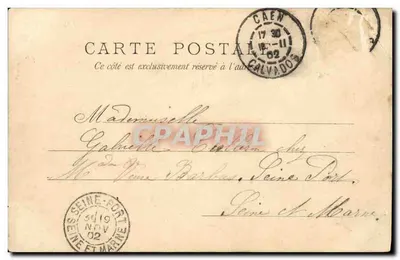 CARTE POSTALE
Ce côté est exclusivement réservé à l'adresse
CAEN
17 30
-11
02
CALVADOS
Mademoiselle
Gabrielle chez
M Barbas, Seine Port
Seine et Marne
CPAPHIL
SEINE-PORT
19
NOV
02
SEINE ET MARNE